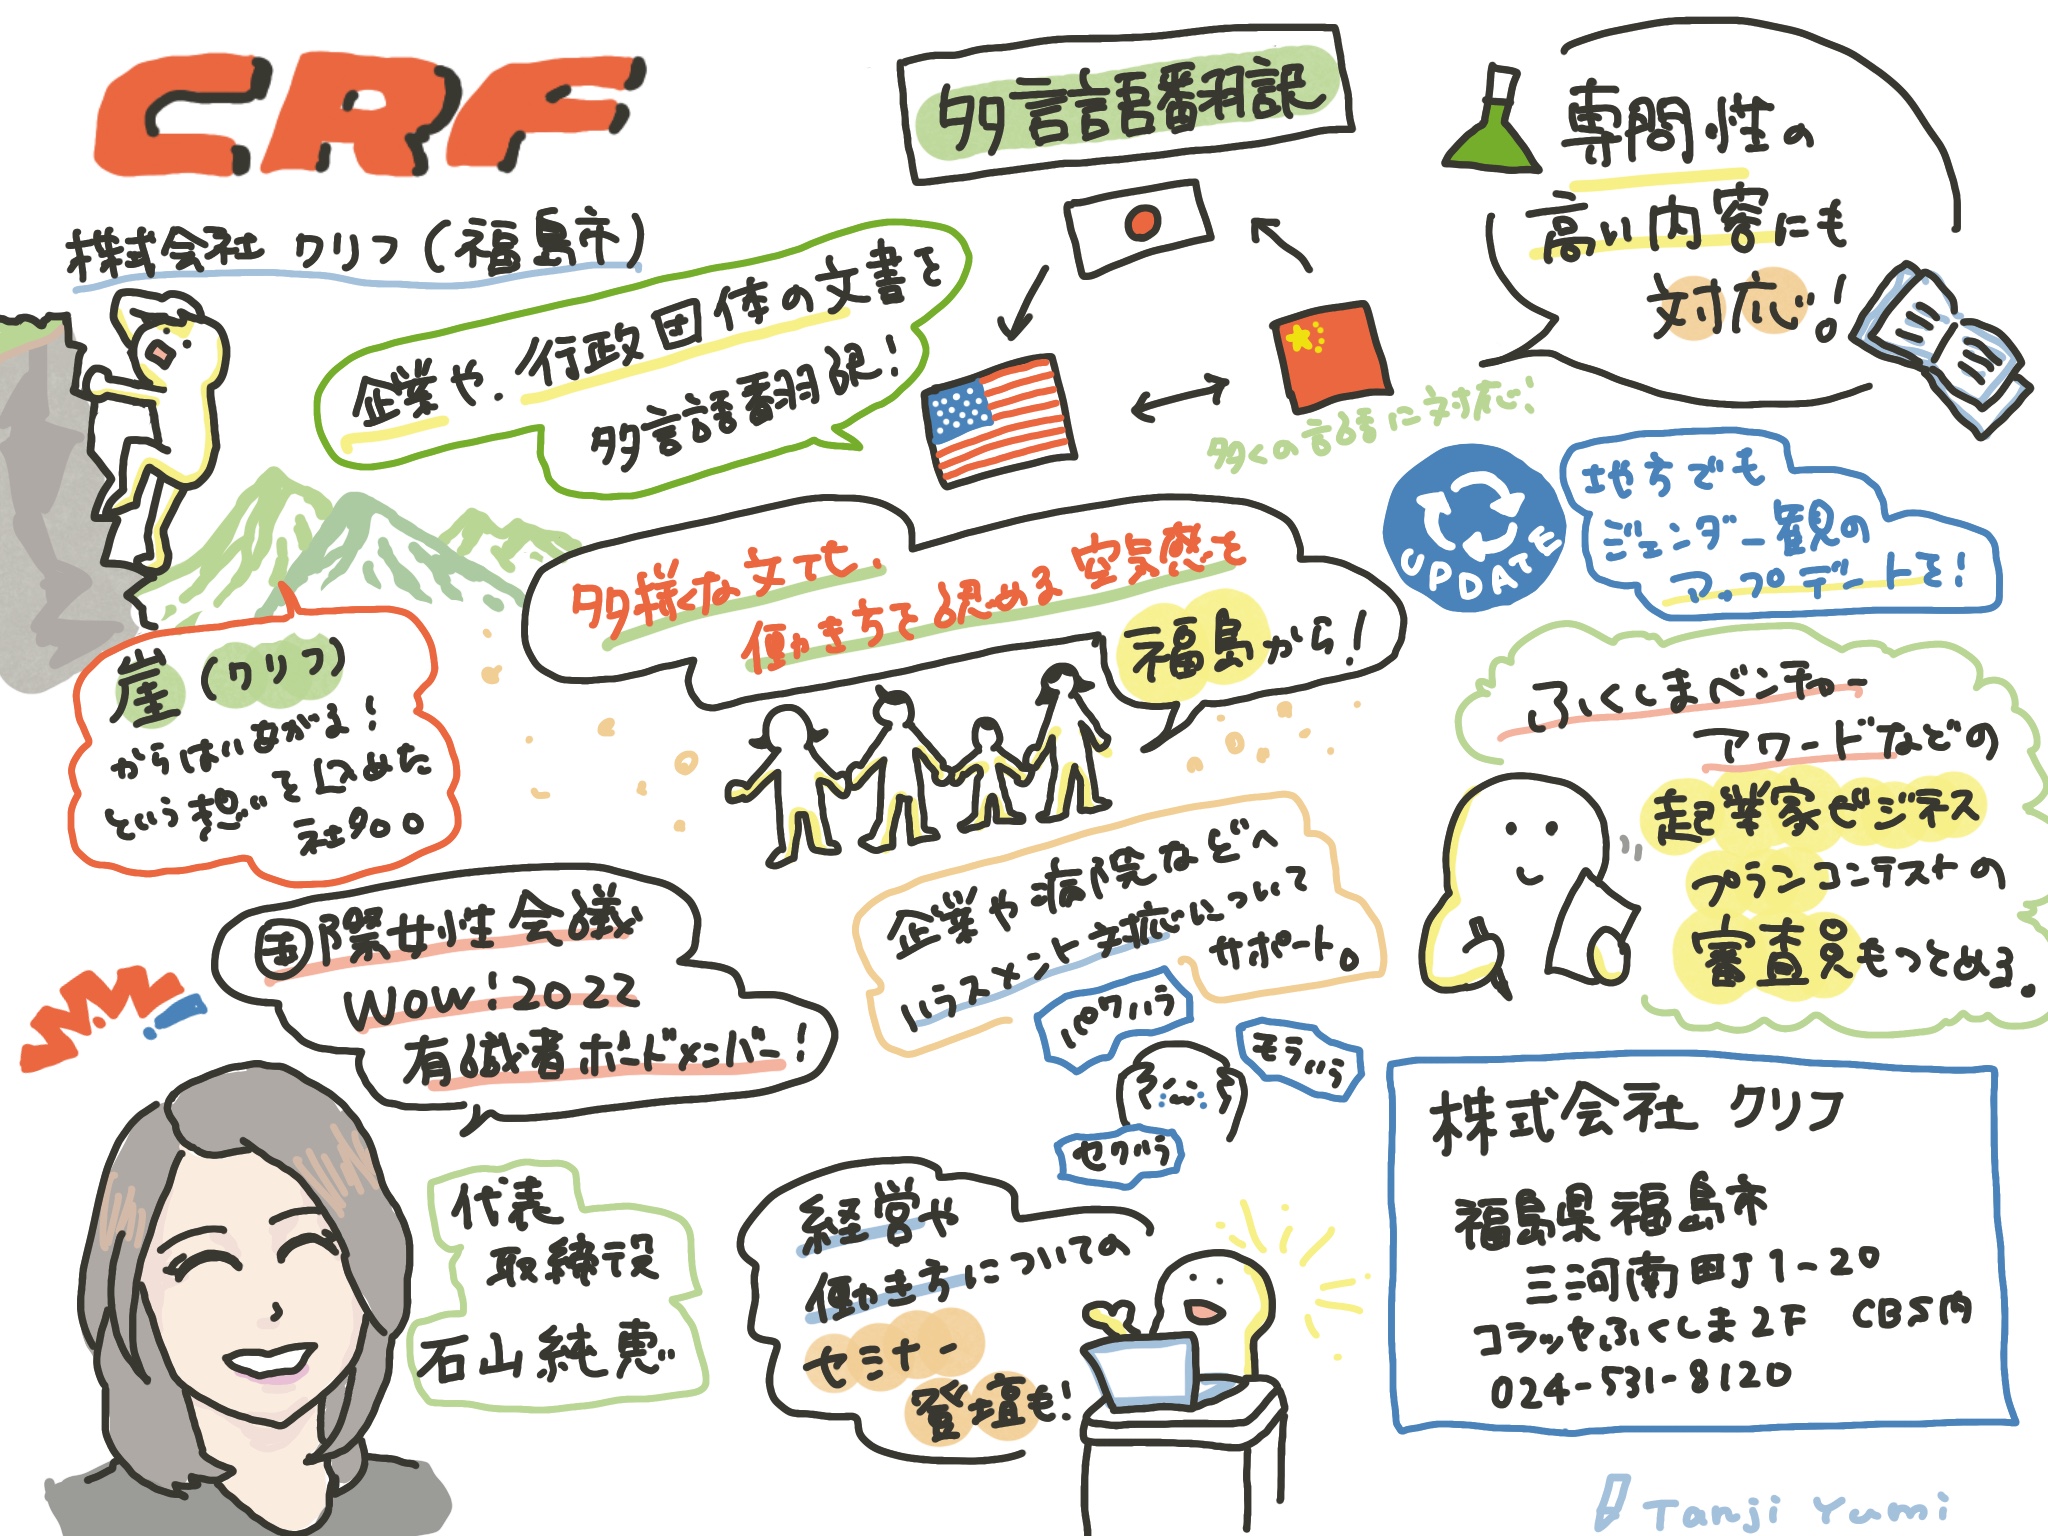 CRF
株式会社 クリフ（福島市）
多言語翻訳
専門性の
高い内容にも
対応！
企業や、行政団体の文書を
多言語翻訳！
多くの言語に対応！
地方でも
ジェンダー観の
アップデートを！
UPDATE
多様な文化、
働き方を認める空気感を
福島から！
崖（クリフ）
からはいあがる！
という想いを込めた
社名。
ふくしまベンチャー
アワードなどの
起業家ビジネス
プランコンテストの
審査員もつとめる。
国際女性会議
WOW！2022
有識者ボードメンバー！
W!
企業や病院などへ
ハラスメント対応について
サポート。
パワハラ
モラハラ
セクハラ
代表
取締役
石山純恵
経営や
働き方についての
セミナー
登壇も！
株式会社 クリフ
福島県福島市
三河南町1-20
コラッセふくしま2F CBS内
024-531-8120
Tanji Yumi